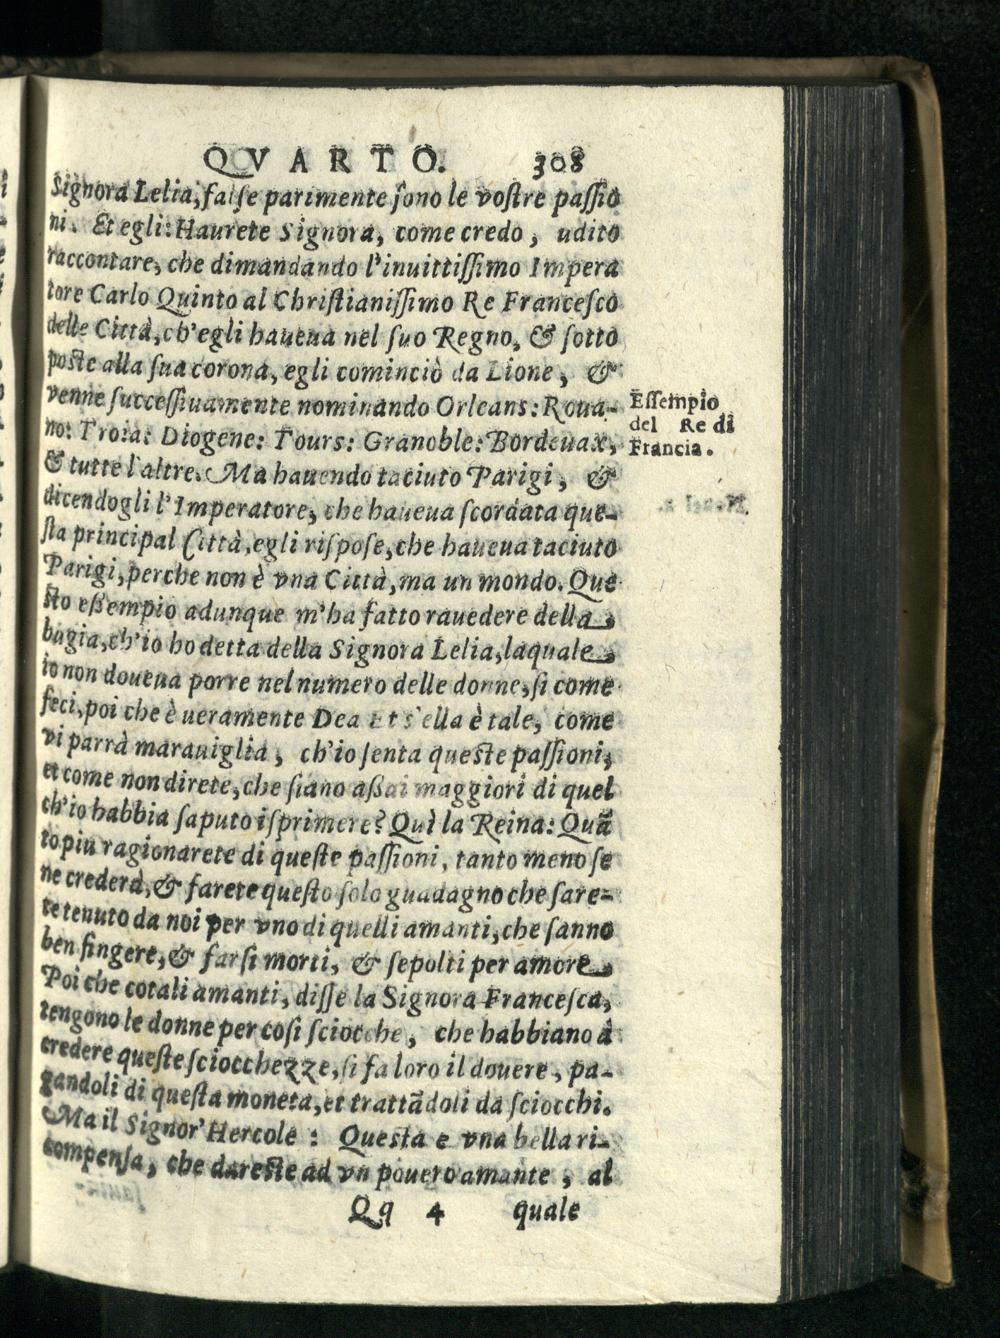 QVARTO. 308
Signora Lelia, false parimente sono le vostre passio
ni. Et egli: Haurete Signora, come credo, udito
raccontare, che dimandando l'inuittissimo Impera
tore Carlo Quinto al Christianissimo Re Francesco
delle Città, ch'egli haueua nel suo Regno, & sotto
poste alla sua corona, egli cominciò da Lione, &
venne successiuamente nominando Orleans: Roua-
no: Troia: Diogene: Tours: Granoble: Bordeuax,
& tutte l'altre. Ma hauendo taciuto Parigi, &
dicendogli l'Imperatore, che haueua scordata que-
sta principal Città, egli rispose, che haueua taciuto
Parigi, perche non è vna Città, ma un mondo. Que
sto essempio adunque m'ha fatto rauedere della
bugia, ch'io ho detta della Signora Lelia, laquale
io non doueua porre nel numero delle donne, si come
feci, poi che è ueramente Dea Et s'ella è tale, come
vi parrà marauiglia, ch'io senta queste passioni,
et come non direte, che siano assai maggiori di quel
ch'io habbia saputo isprimere? Quì la Reina: Quã
to piu ragionarete di queste passioni, tanto meno se
ne crederà, & farete questo solo guadagno che sare-
te tenuto da noi per vno di quelli amanti, che sanno
ben fingere, & farsi morti, & sepolti per amore
Poi che cotali amanti, disse la Signora Francesca,
tengono le donne per cosi sciocche, che habbiano à
credere queste sciocchezze, si fa loro il douere, pa-
gandoli di questa moneta, et trattãdoli da sciocchi.
Ma il Signor' Hercole: Questa e vna bella ri-
compensa, che dareste ad vn pouero amante, al
Qq 4 quale
Essempio
del Re di
Francia.